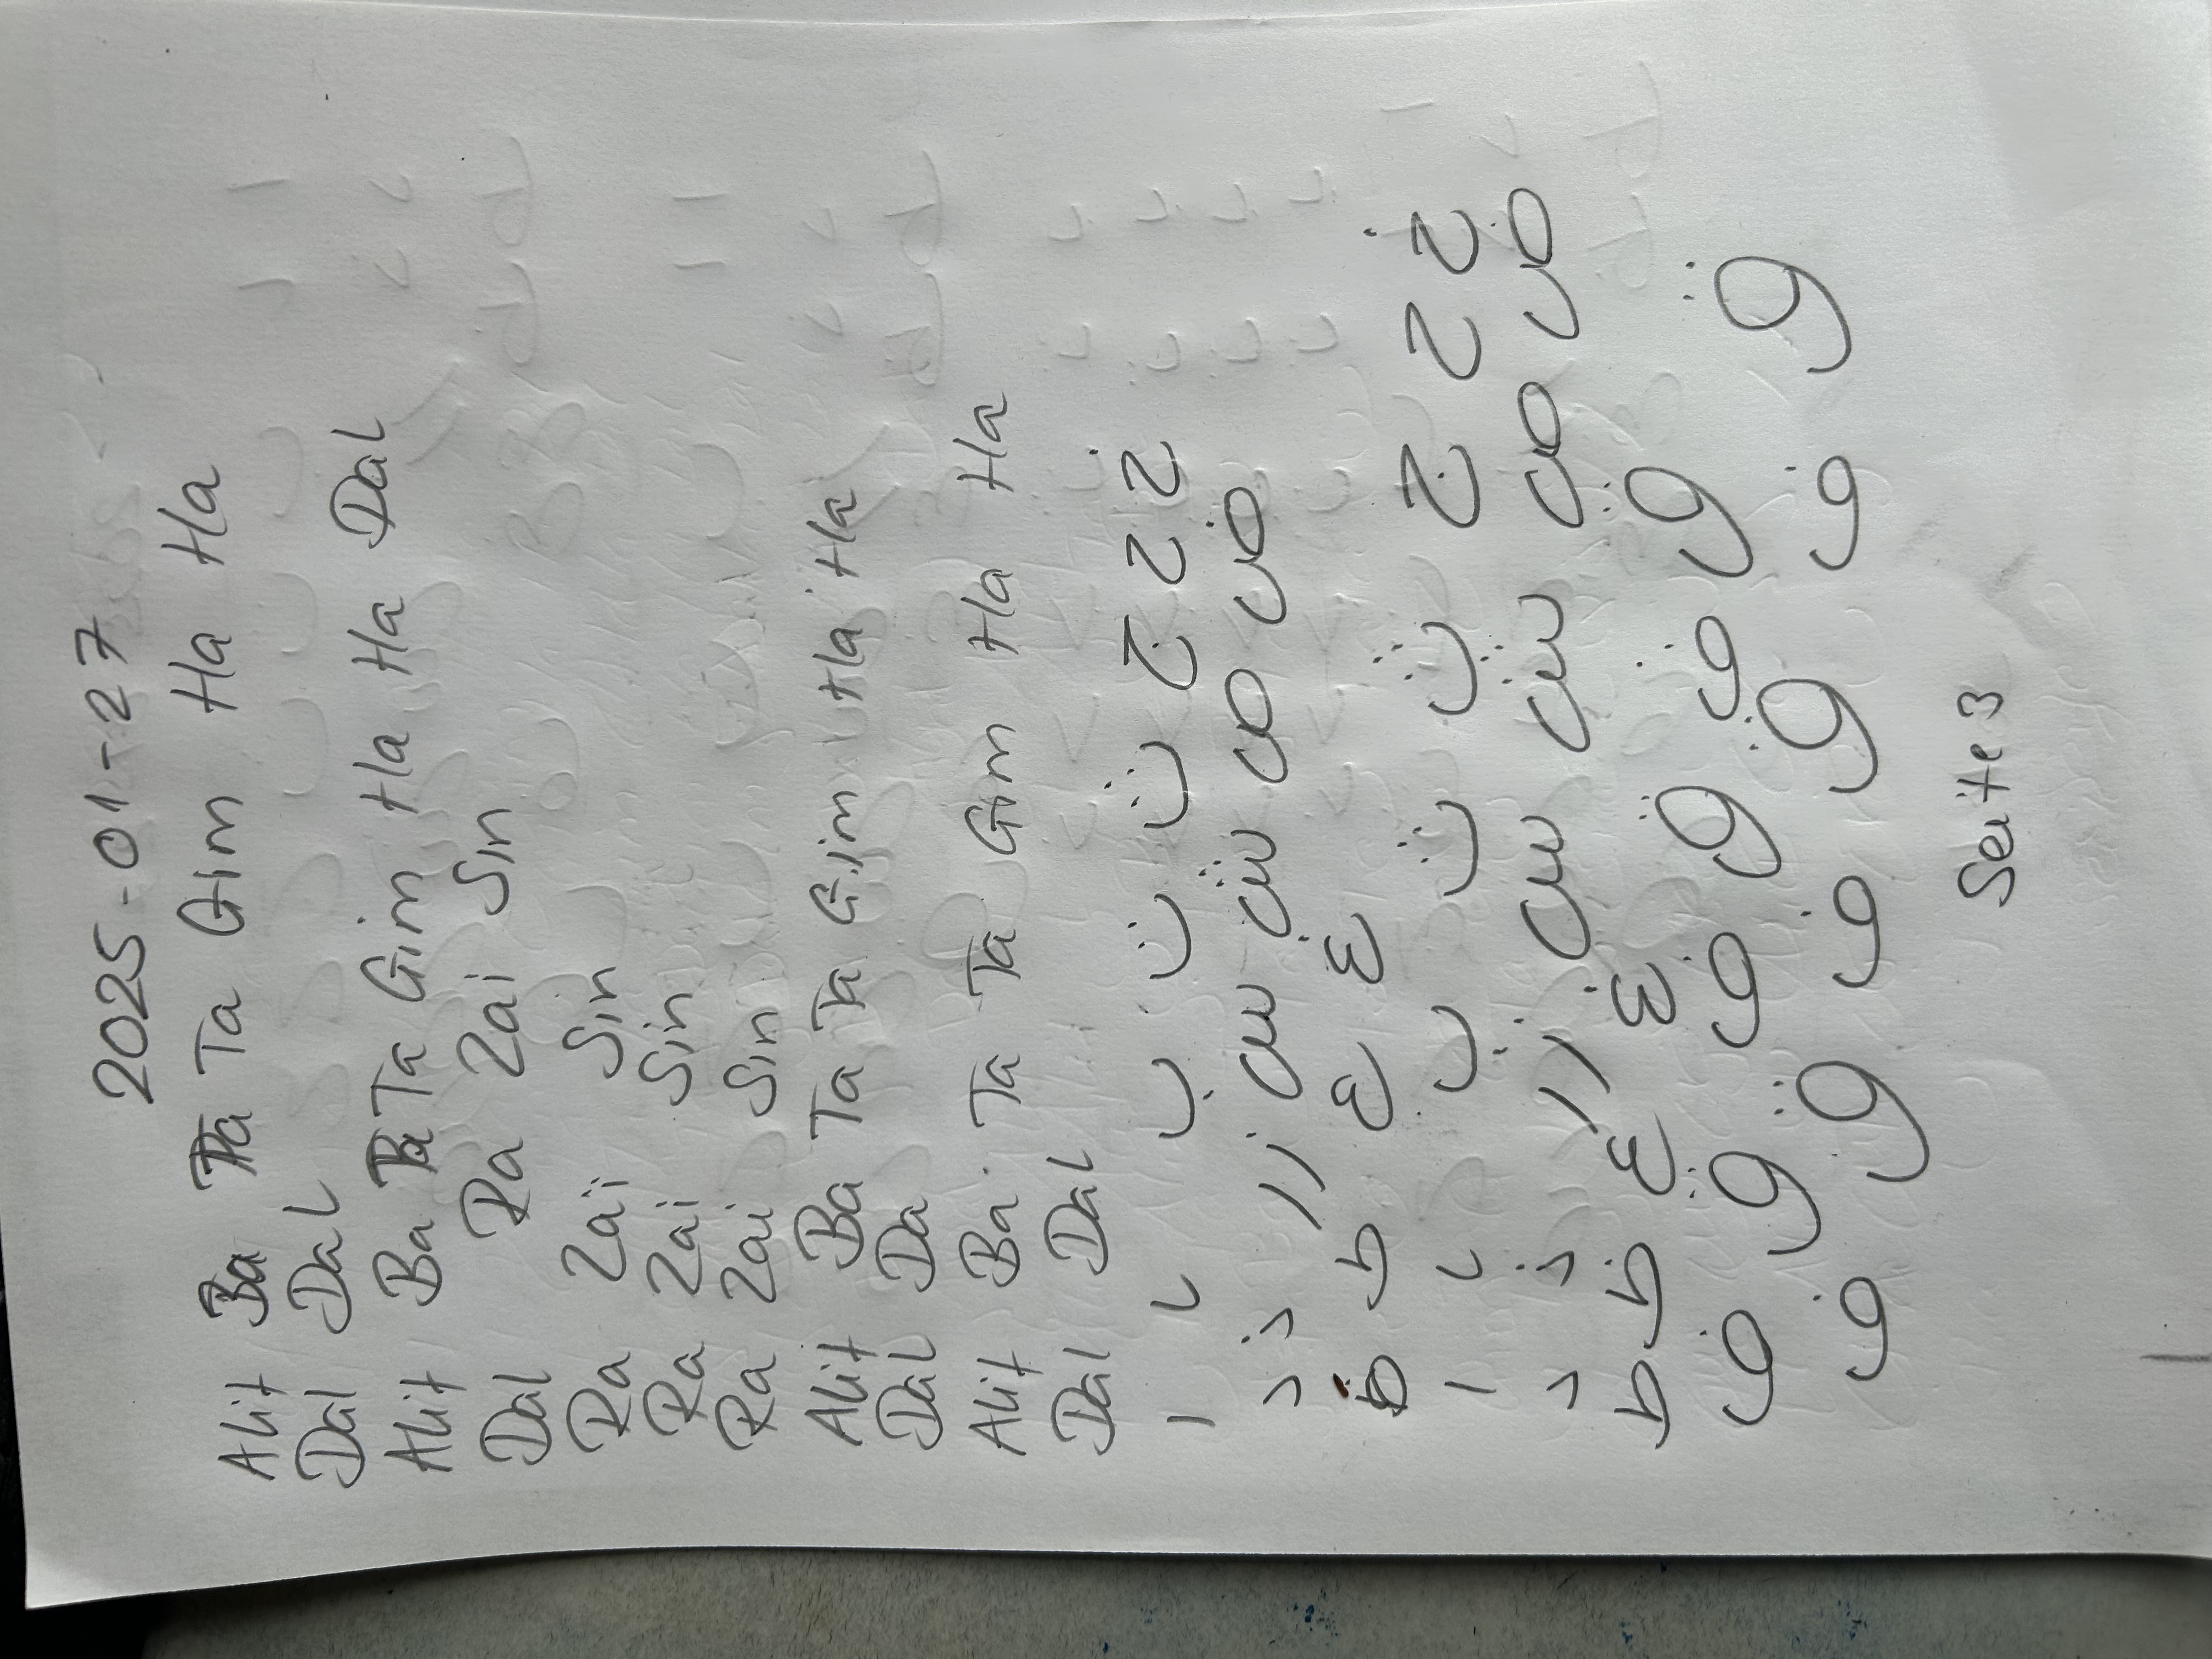 2025-01-27
Alif Ba Ta Ta Gim Ha Ha
Dal Dal
Alif Ba Ta Gim Ha Ha Dal
Dal Ra Zai Sin
Ra Zai Sin
Ra Zai Sin
Ra Zai Sin
Alif Ba Ta Ta Gim Ha Ha
Dal Da
Alif Ba Ta Ta Gim Ha Ha
Dal Dal
ا ب ت ث ج ح خ
د ذ ر ز س ش ص ض
ط ع غ
ا ب ث ج ح خ
د ذ ر ز س ش ص ض
ط ظ ع غ
ف ق ف ق ف ق
ف ق ف ق ف ق
Seite 3